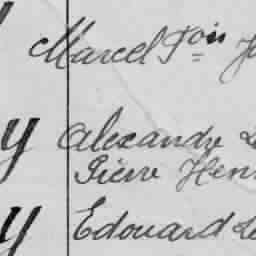 Marcel Fois
y Alexandre
Pierre Hen
y Edouard